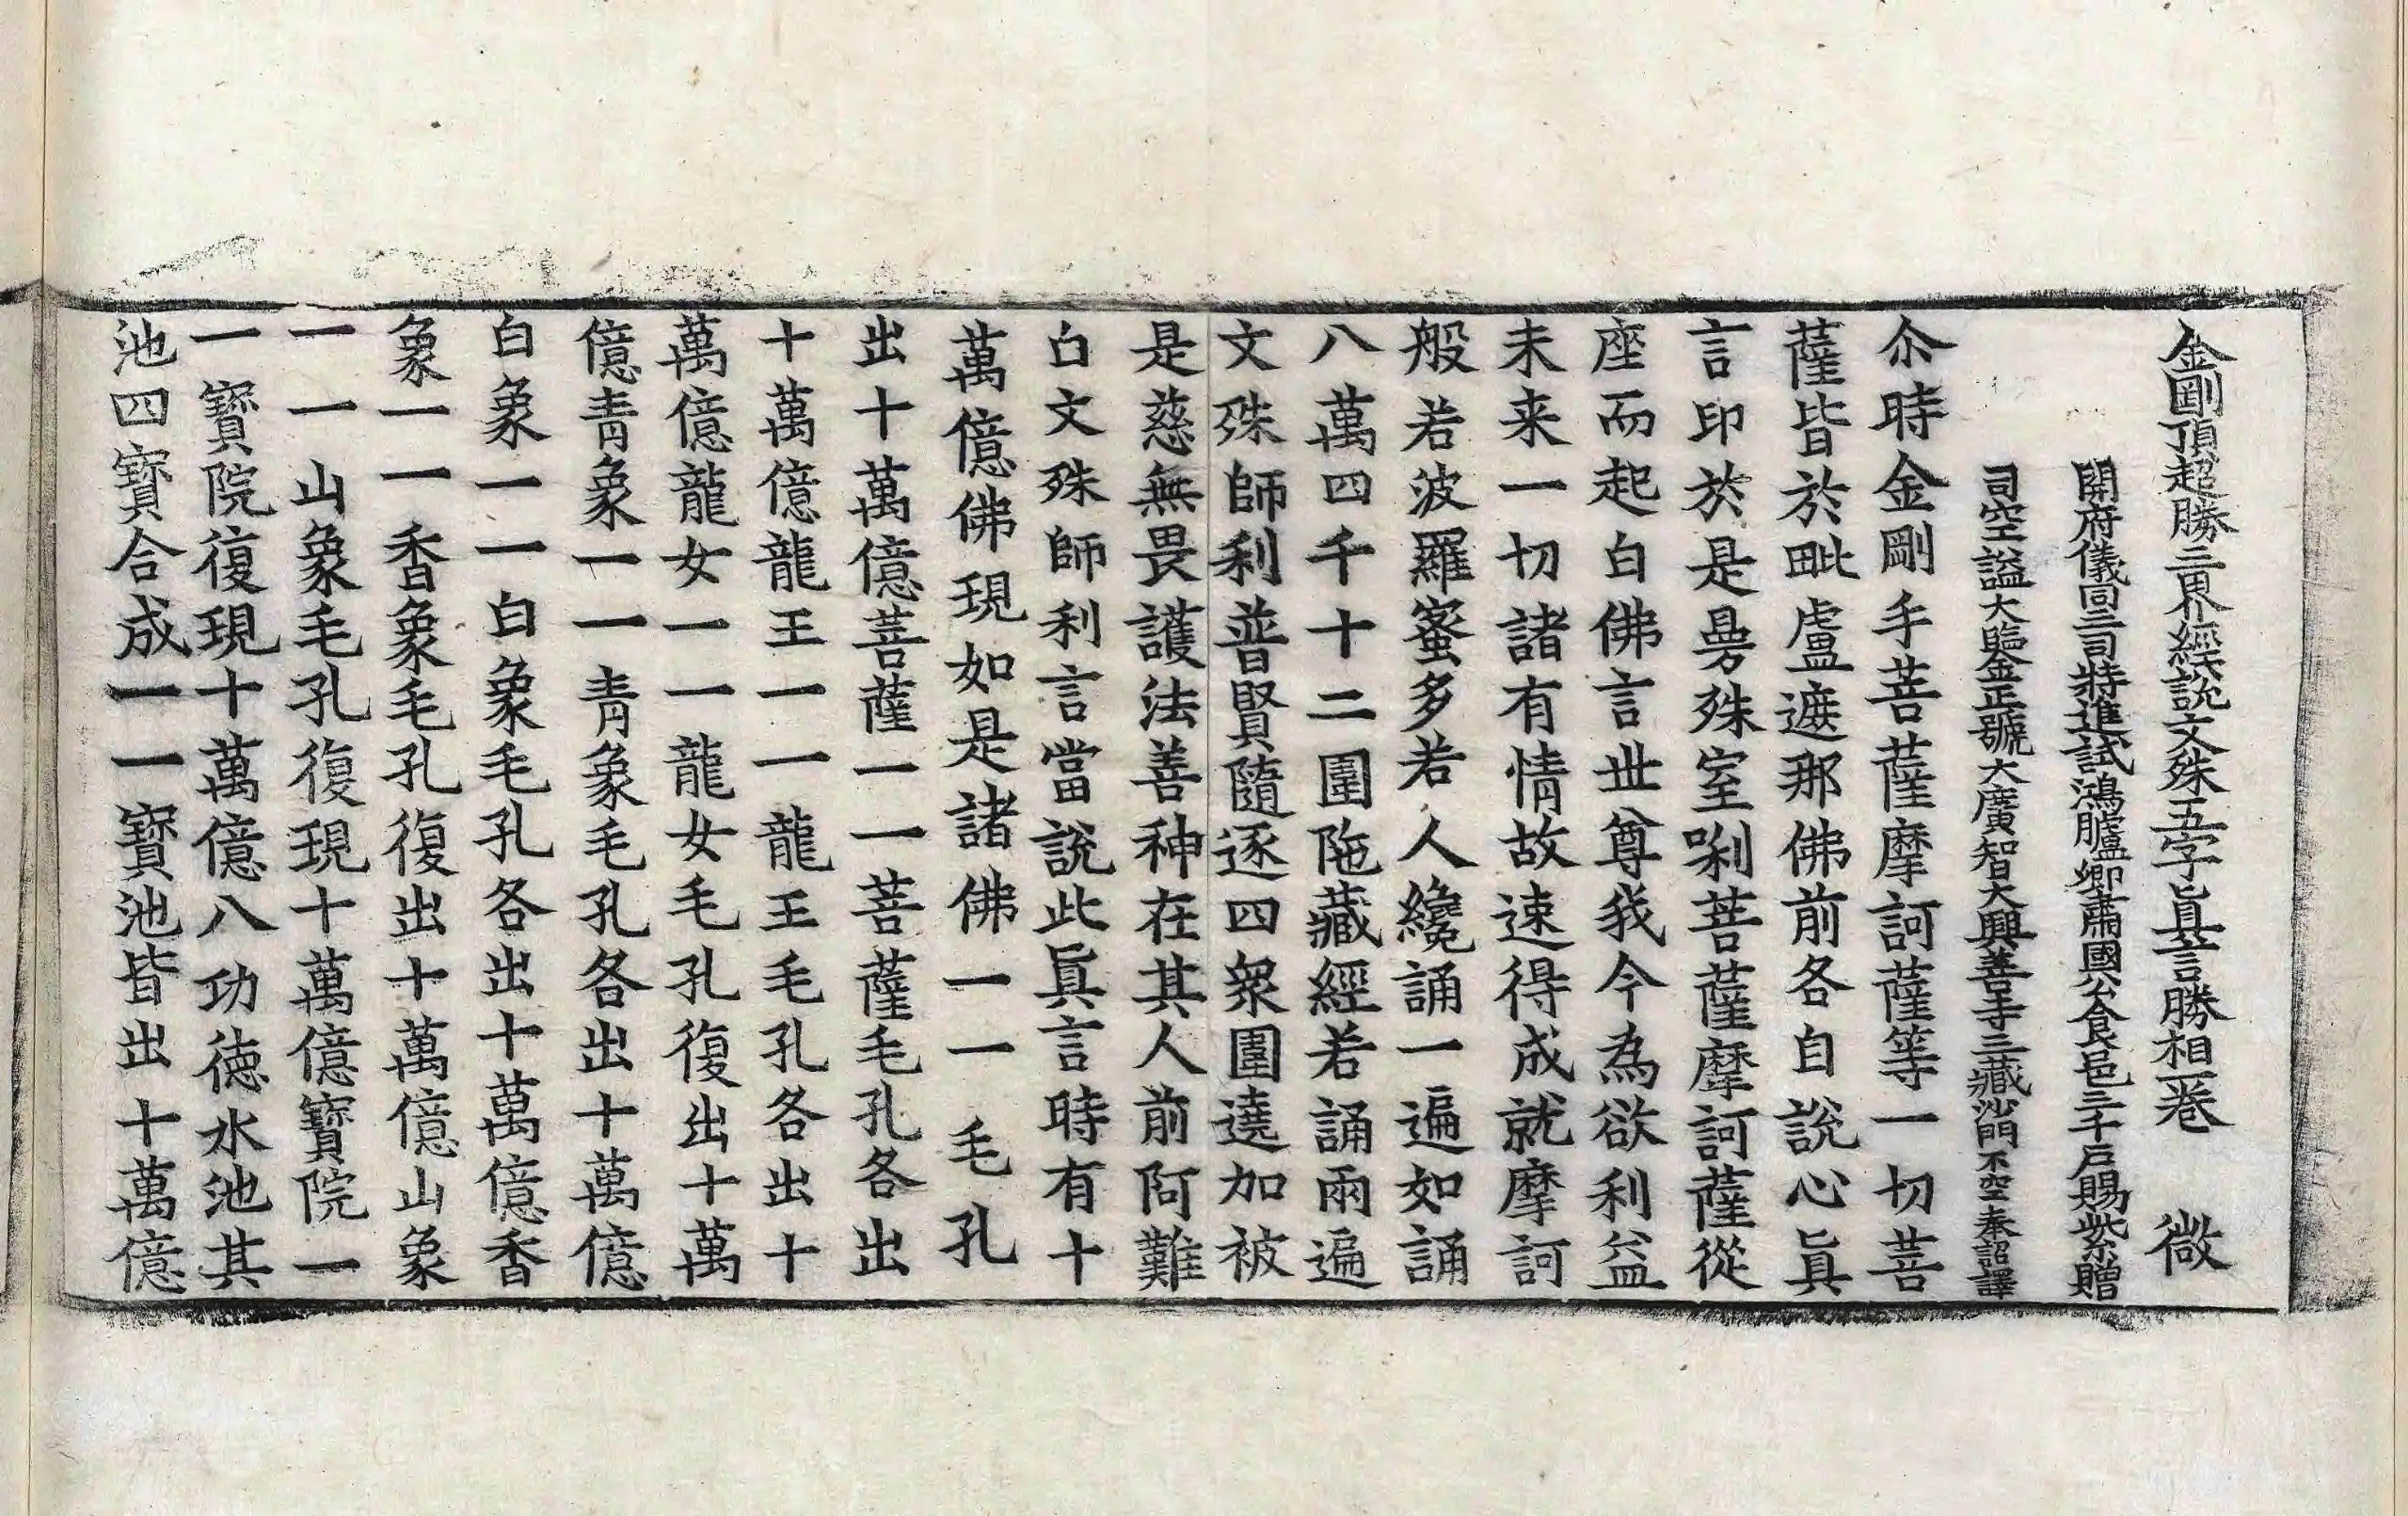 金剛頂超勝三界經說文殊五字眞言勝相一卷　微
開府儀同三司特進試鴻臚卿肅國公食邑三千戶賜紫贈
司空謚大鑒正號大廣智大興善寺三藏沙門不空奉詔譯
尒時金剛手菩薩摩訶薩等一切菩
薩皆於毗盧遮那佛前各自說心眞
言印於是曼殊室唎菩薩摩訶薩從
座而起白佛言世尊我今為欲利益
未来一切諸有情故速得成就摩訶
般若波羅蜜多若人纔誦一遍如誦
八萬四千十二圍陁藏經若誦兩遍
文殊師利普賢隨逐四衆圍遶加被
是慈無畏護法善神在其人前阿難
白文殊師利言當說此眞言時有十
萬億佛現如是諸佛一一毛孔
出十萬億菩薩一一菩薩毛孔各出
十萬億龍王一一龍王毛孔各出十
萬億龍女一一龍女毛孔復出十萬
億青象一一青象毛孔各出十萬億
白象一一白象毛孔各出十萬億香
象一一香象毛孔復出十萬億山象
一一山象毛孔復現十萬億寶院一
一寶院復現十萬億八功德水池其
池四寶合成一一寶池皆出十萬億